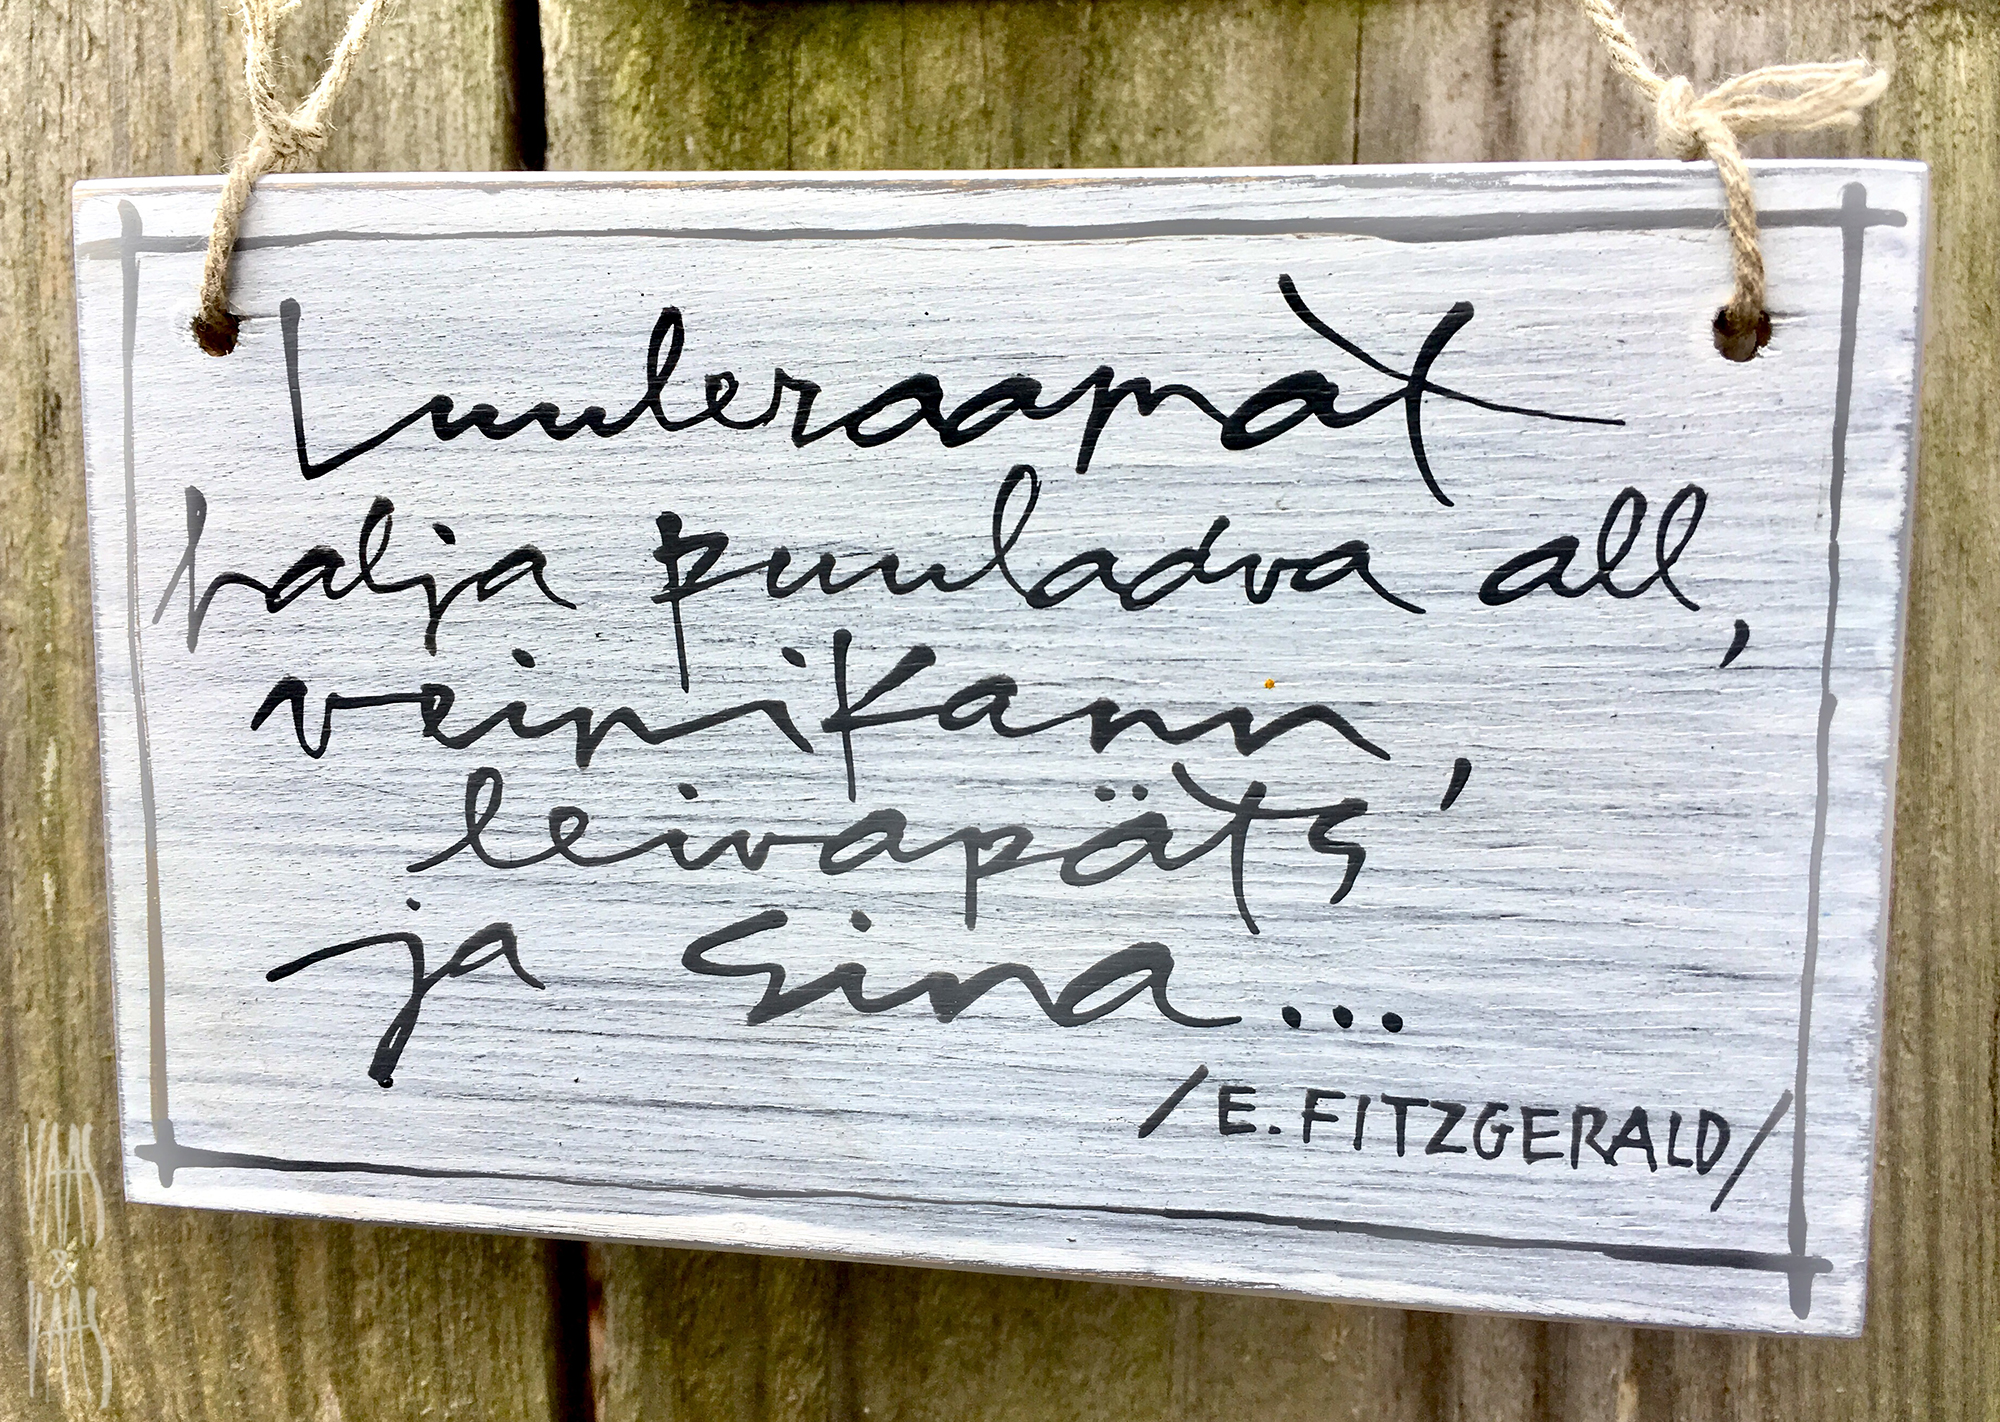 Luuleraamat
halja puuladva all,
veinikann,
leivapäts
ja Sina...
/E. FITZGERALD/
VAAS
&
VAAS